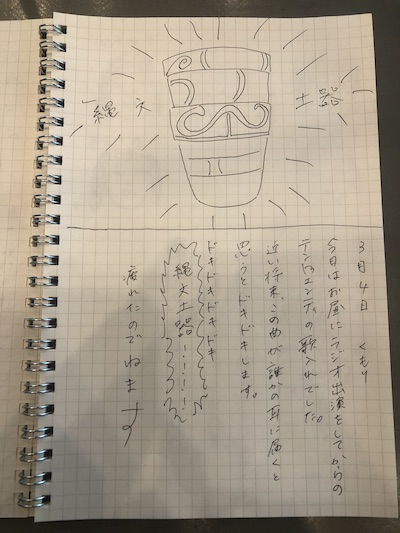 縄文
土器
3月4日 くもり
今日はお昼にラジオ出演をしてからの
テンカウンディの歌入れでした。
近い将来、この曲が誰かの耳に届くと
思うとドキドキします。
ドキドキドキドキ
縄文土器!!!!!
疲れたのでねます